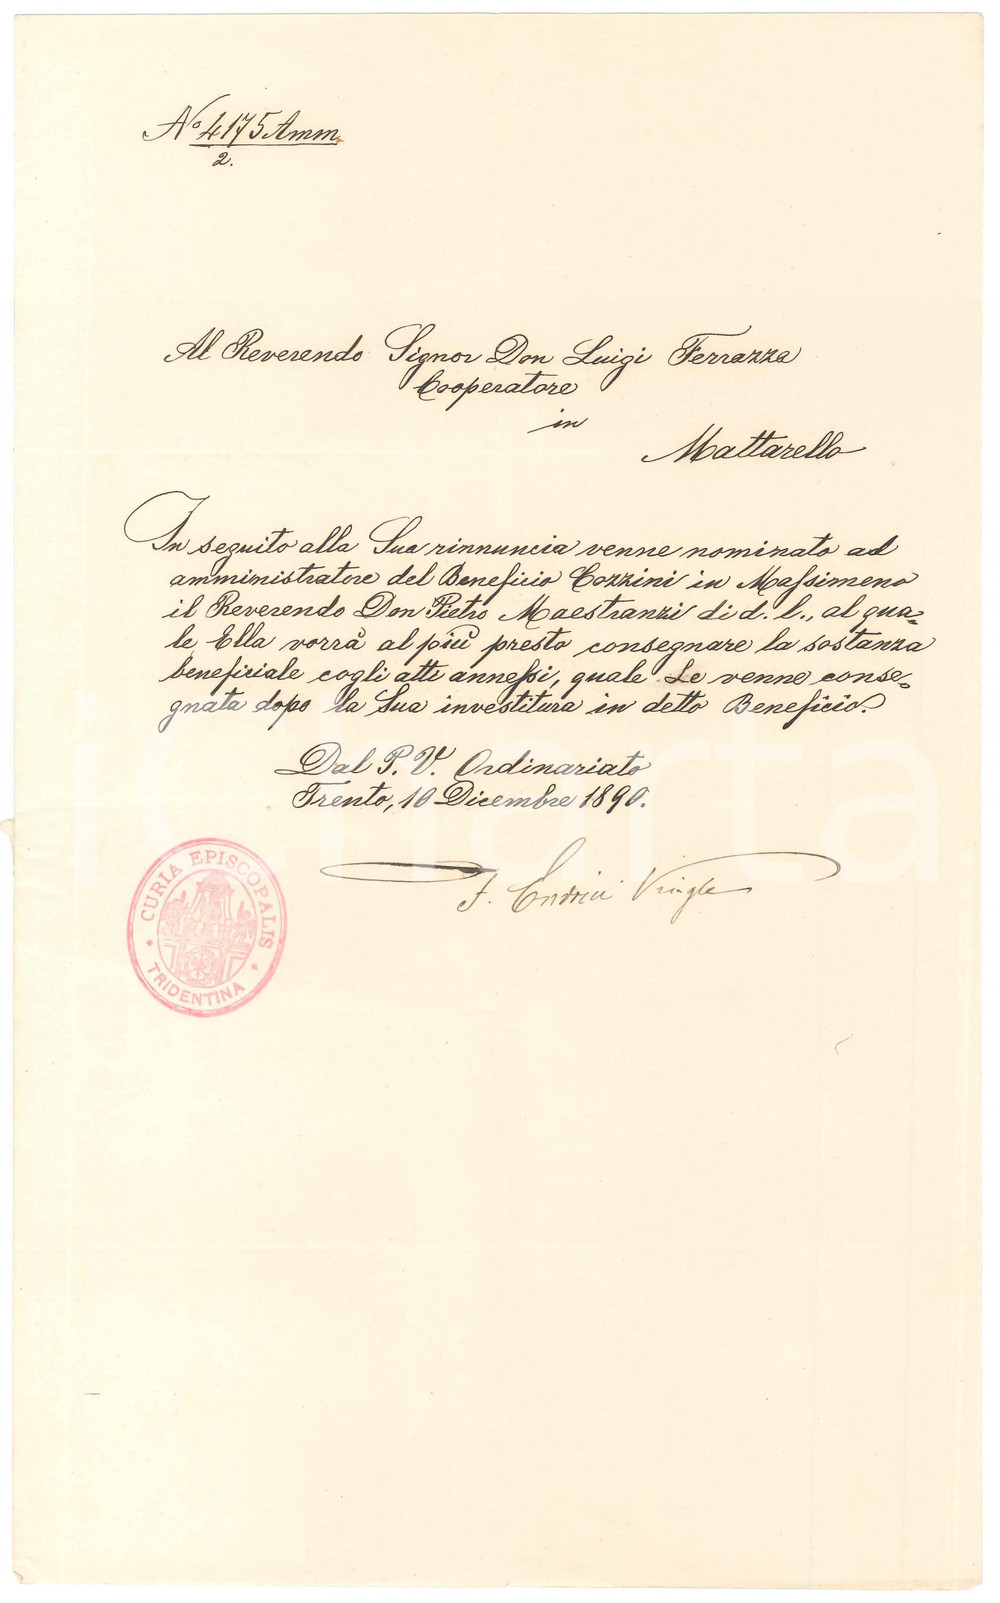 No 4175 Amm.
2.
Al Reverendo Signor Don Luigi Ferrazza
Cooperatore
in
Mattarello
In seguito alla Sua rinnuncia venne nominato ad
amministratore del Beneficio Cozzini in Massimeno
il Reverendo Don Pietro Maestranzi di d. l., al qua-
le Ella vorrà al più presto consegnare la sostanza
beneficiale cogli atti annessi, quale Le venne conse-
gnata dopo la Sua investitura in detto Beneficio.
Dal P. V. Ordinariato
Trento, 10 Dicembre 1890.
CURIA EPISCOPALIS
TRIDENTINA